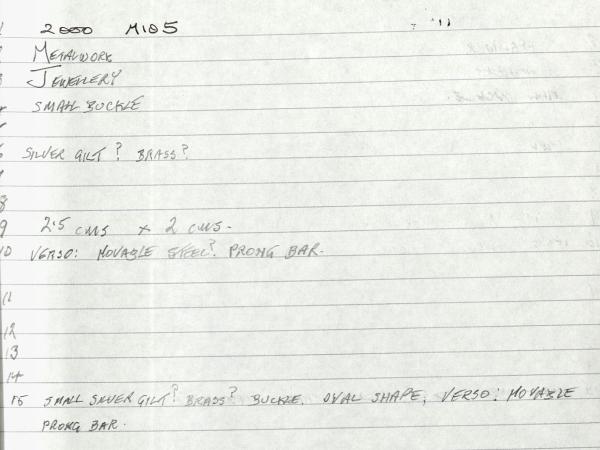 1 2000 M105
2 METALWORK
3 JEWELLERY
4 SMALL BUCKLE
5
6 SILVER GILT? BRASS?
7
8
9 2.5 cms x 2 cms.
10 VERSO: MOVABLE STEEL? PRONG BAR.
11
12
13
14
15 SMALL SILVER GILT? BRASS? BUCKLE, OVAL SHAPE, VERSO: MOVABLE
PRONG BAR.